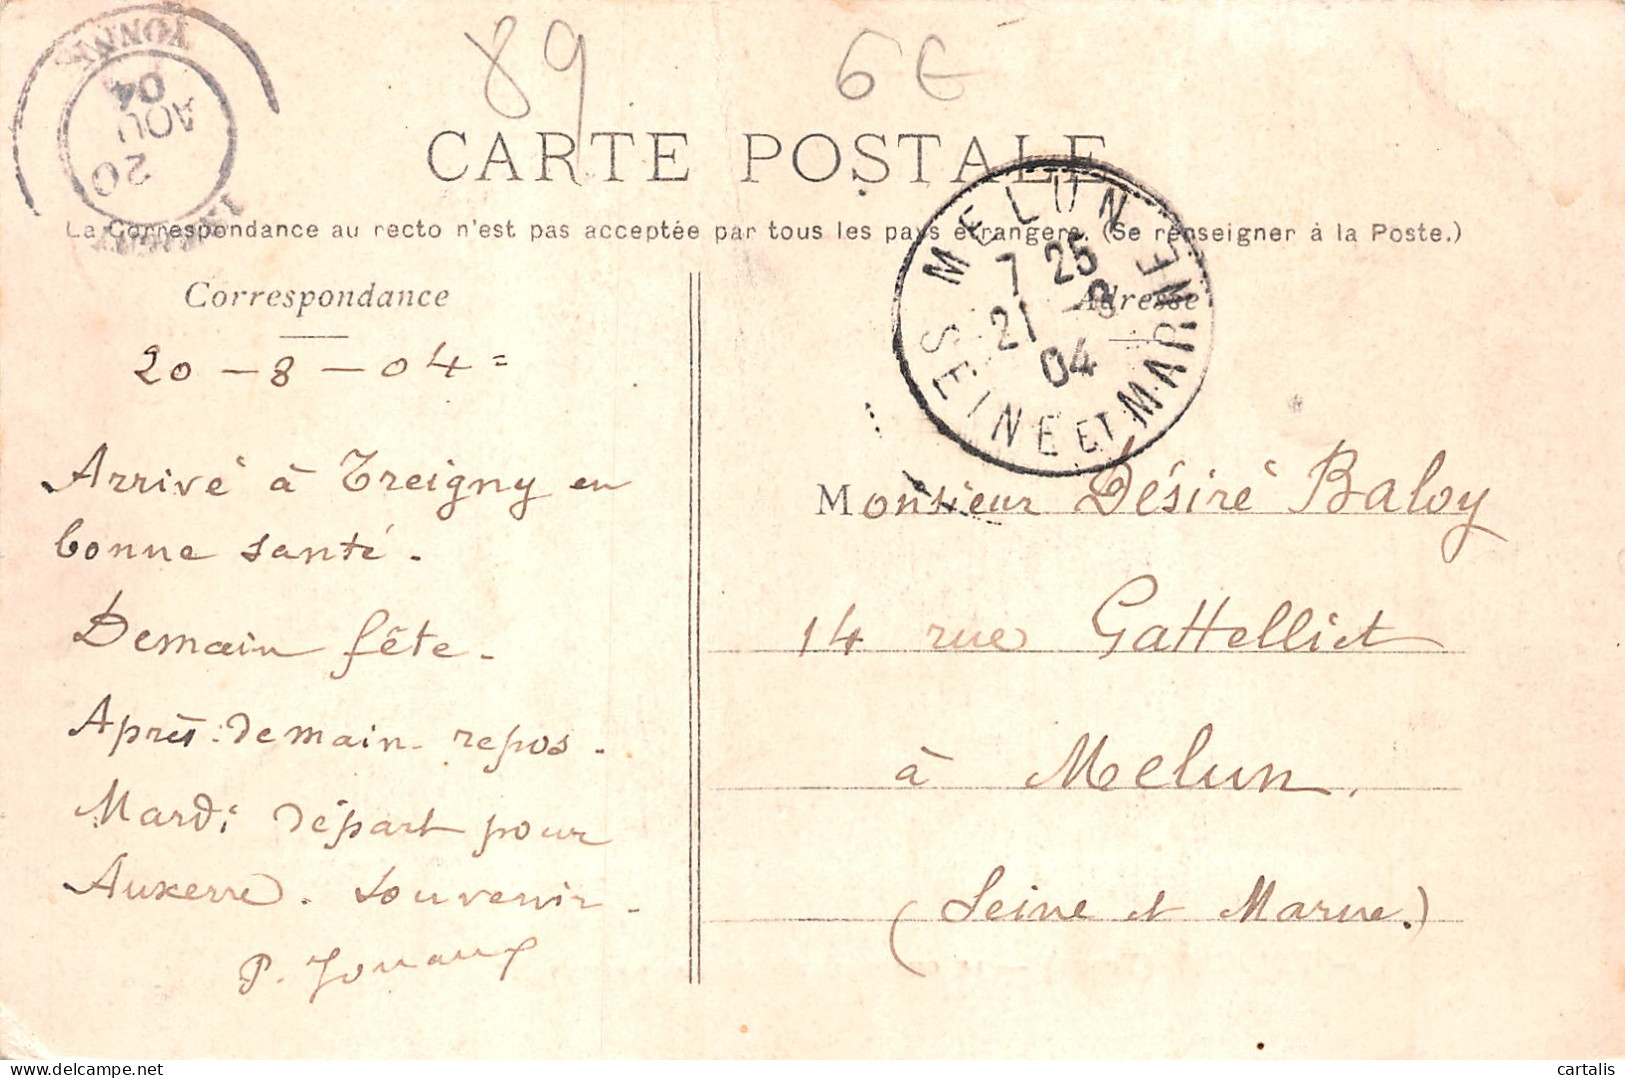 YONNE
20
AOU
04
89
6€
CARTE POSTALE
La Correspondance au recto n'est pas acceptée par tous les pays étrangers. (Se renseigner à la Poste.)
MELUN
7 25
21 -8
04
SEINE ET MARNE
Correspondance
20 - 8 - 04 =
Arrivé à Treigny en
bonne santé.
Demain fête.
Après-demain repos.
Mardi départ pour
Auxerre. Souvenir.
P.
Adresse
Monsieur Désiré Baloy
14 rue Gattelliet
à Melun.
(Seine et Marne.)
cartalis
www.delcampe.net